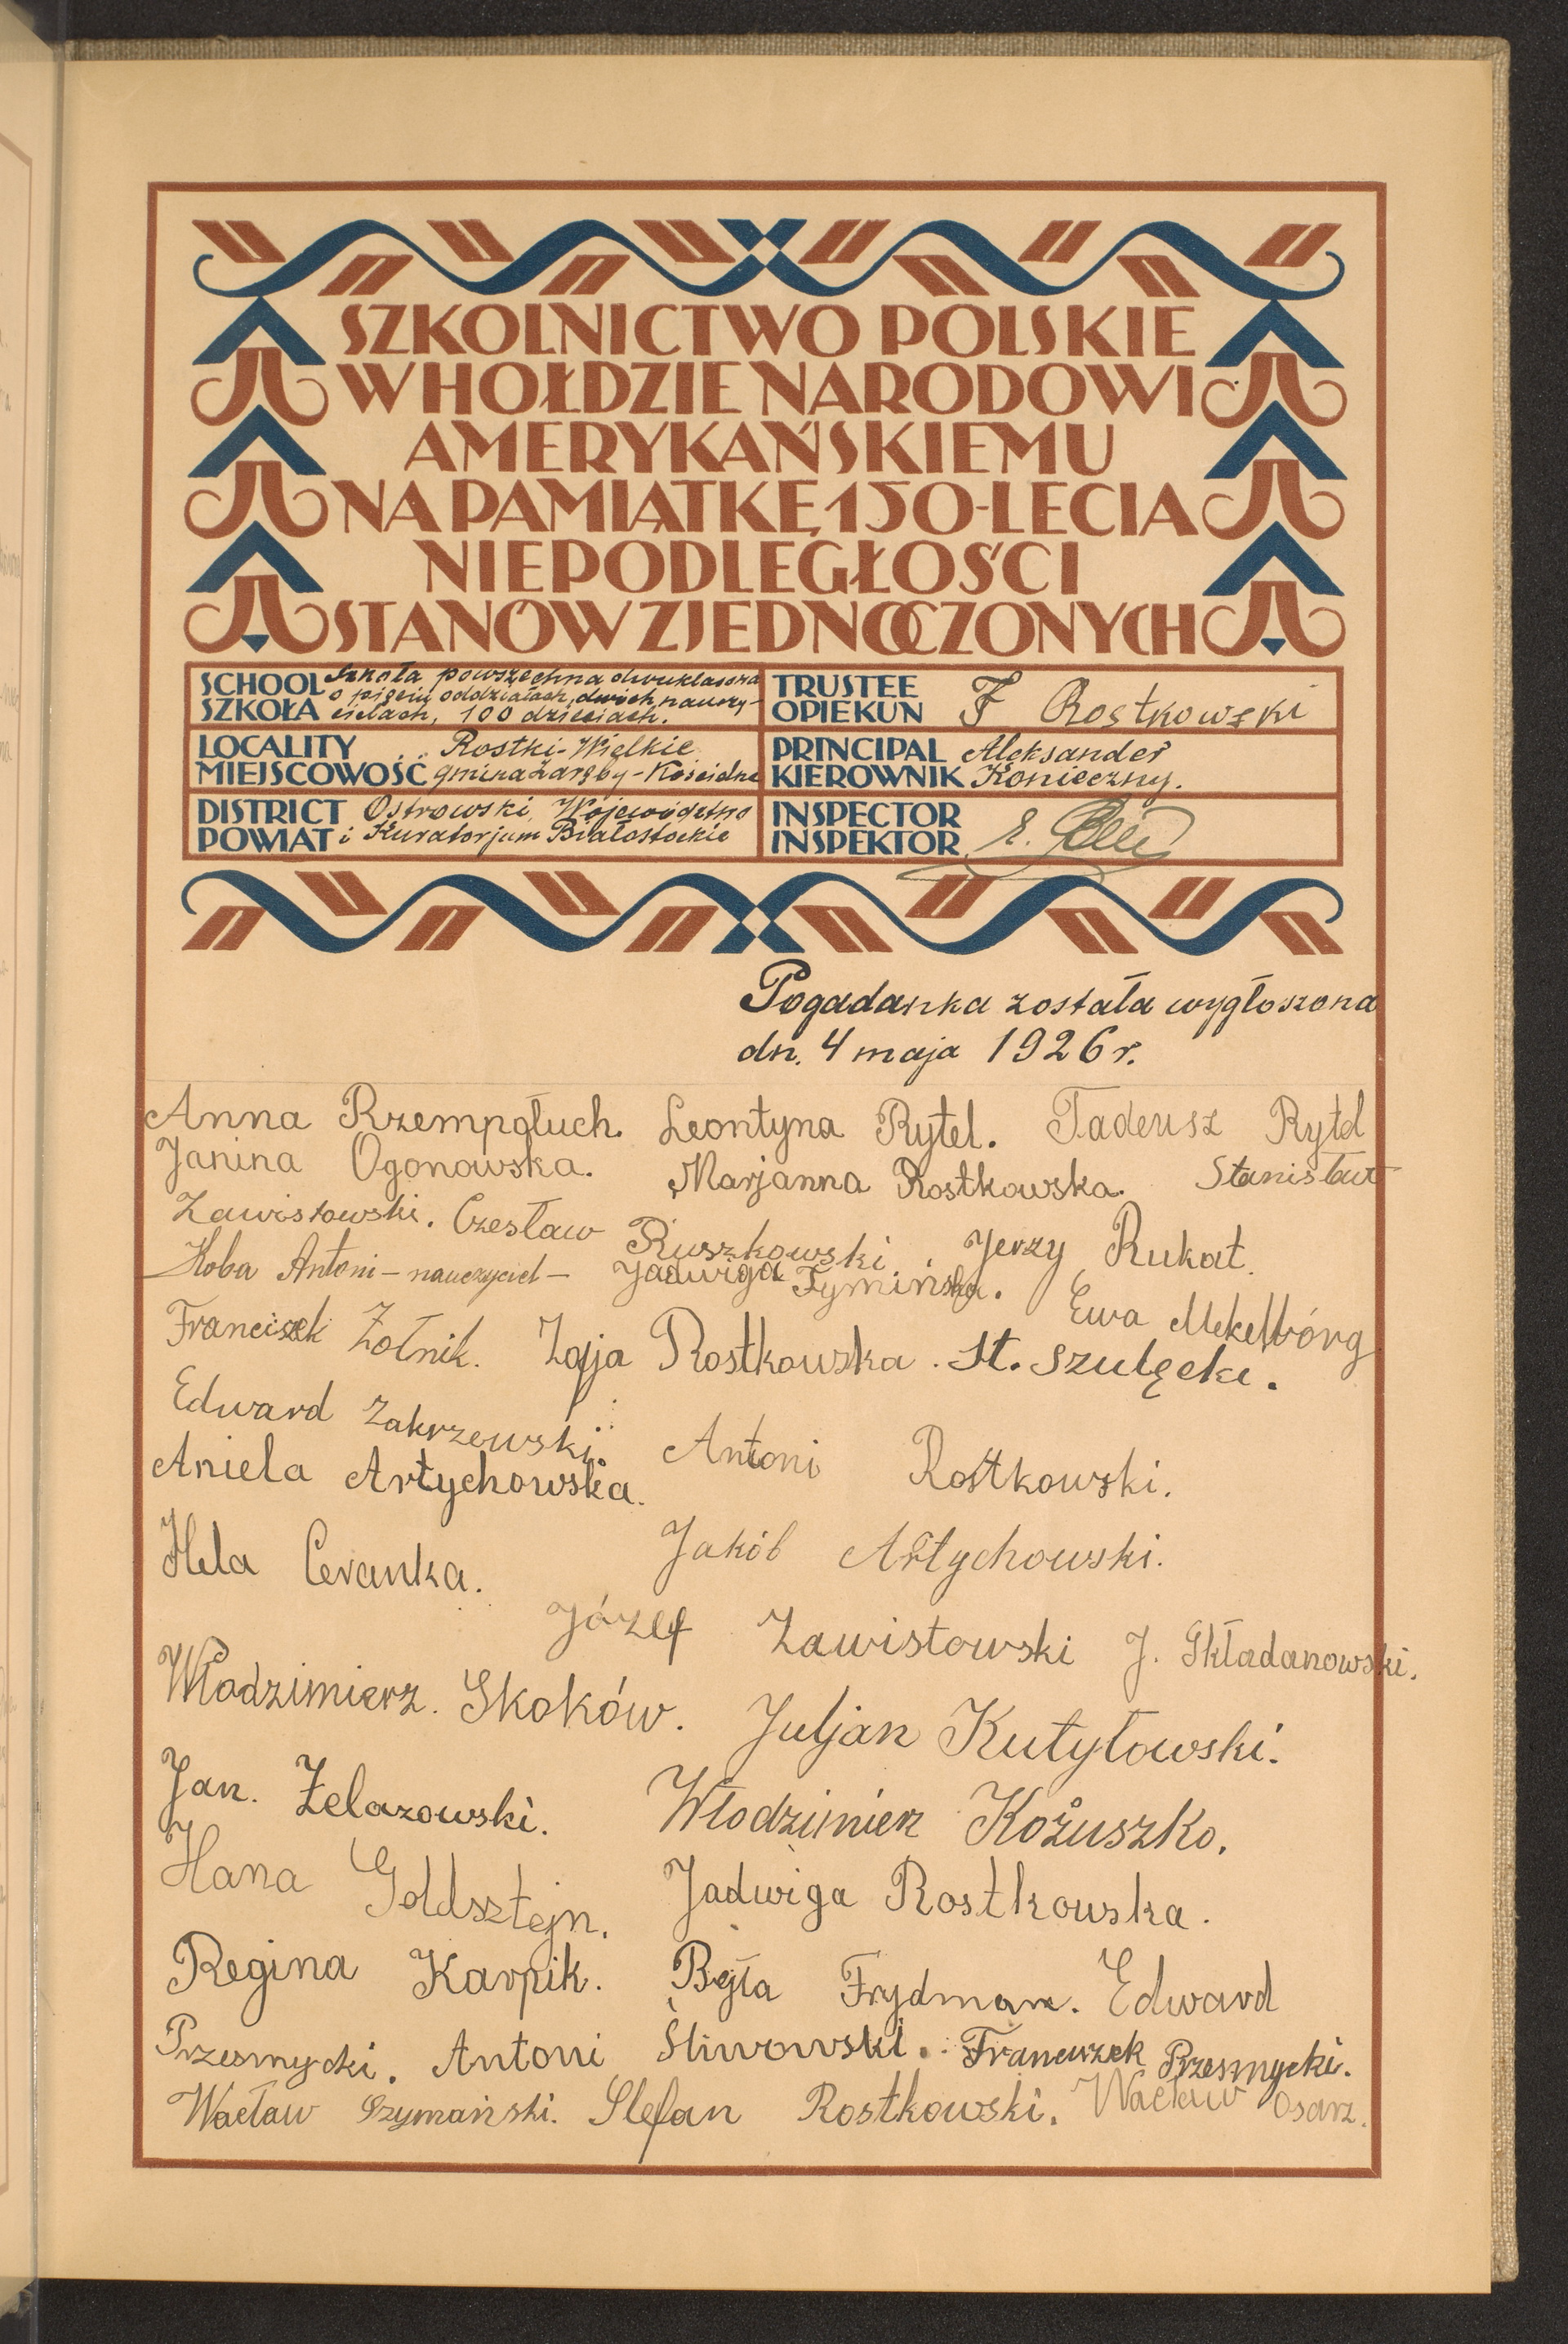 SZKOLNICTWO POLSKIE
W HOŁDZIE NARODOWI
AMERYKAŃSKIEMU
NA PAMIĄTKĘ 150-LECIA
NIEPODLEGŁOŚCI
STANÓW ZJEDNOCZONYCH
SCHOOL SZKOŁA
Szkoła powszechna dwuklasowa
o pięciu oddziałach, dwóch nauczy-
cielach, 100 dzieciach.
TRUSTEE OPIEKUN
F Rostkowski
LOCALITY MIEJSCOWOŚĆ
Rostki-Wielkie
gmina Zaręby-Kościelne
PRINCIPAL KIEROWNIK
Aleksander
Konieczny.
DISTRICT POWIAT
Ostrowski, Województwo
i Kuratorjum Białostockie
INSPECTOR INSPEKTOR
Pogadanka została wygłoszona
dn. 4 maja 1926 r.
Anna Rzempołuch. Leontyna Rytel. Tadeusz Rytel
Janina Ogonowska. Marjanna Rostkowska. Stanisław
Zawistowski. Czesław Ruszkowski. Jerzy Rukat.
Koba Antoni - nauczyciel - Jadwiga Tymińska. Ewa Mekelbórg
Franciszek Żołnik. Zofja Rostkowska. St. Szulęcki.
Edward Zakrzewski. Antoni Rostkowski.
Aniela Artychowska.
Hela Ceranka. Jakób Artychowski.
Józef Zawistowski J. Składanowski.
Włodzimierz. Skoków. Juljan Kutyłowski.
Jan. Żelazowski. Włodzimierz Kożuszko.
Hana Goldsztejn. Jadwiga Rostkowska.
Regina Karpik. Bejla Frydman. Edward
Przesmycki. Antoni Śliwowski. Franciszek Przesmycki.
Wacław Szymański. Stefan Rostkowski. Wacław Osarz.